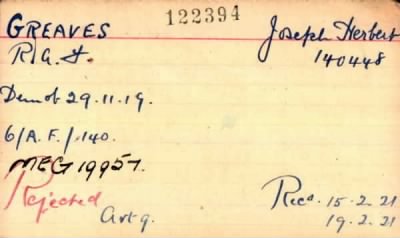 122394
GREAVES Joseph Herbert
R.A.F. 140448
Demob 29.11.19.
6/A.F./.140.
MEG 19957.
Rejected
Recd. 15-2-21
Artq. 19.2.21